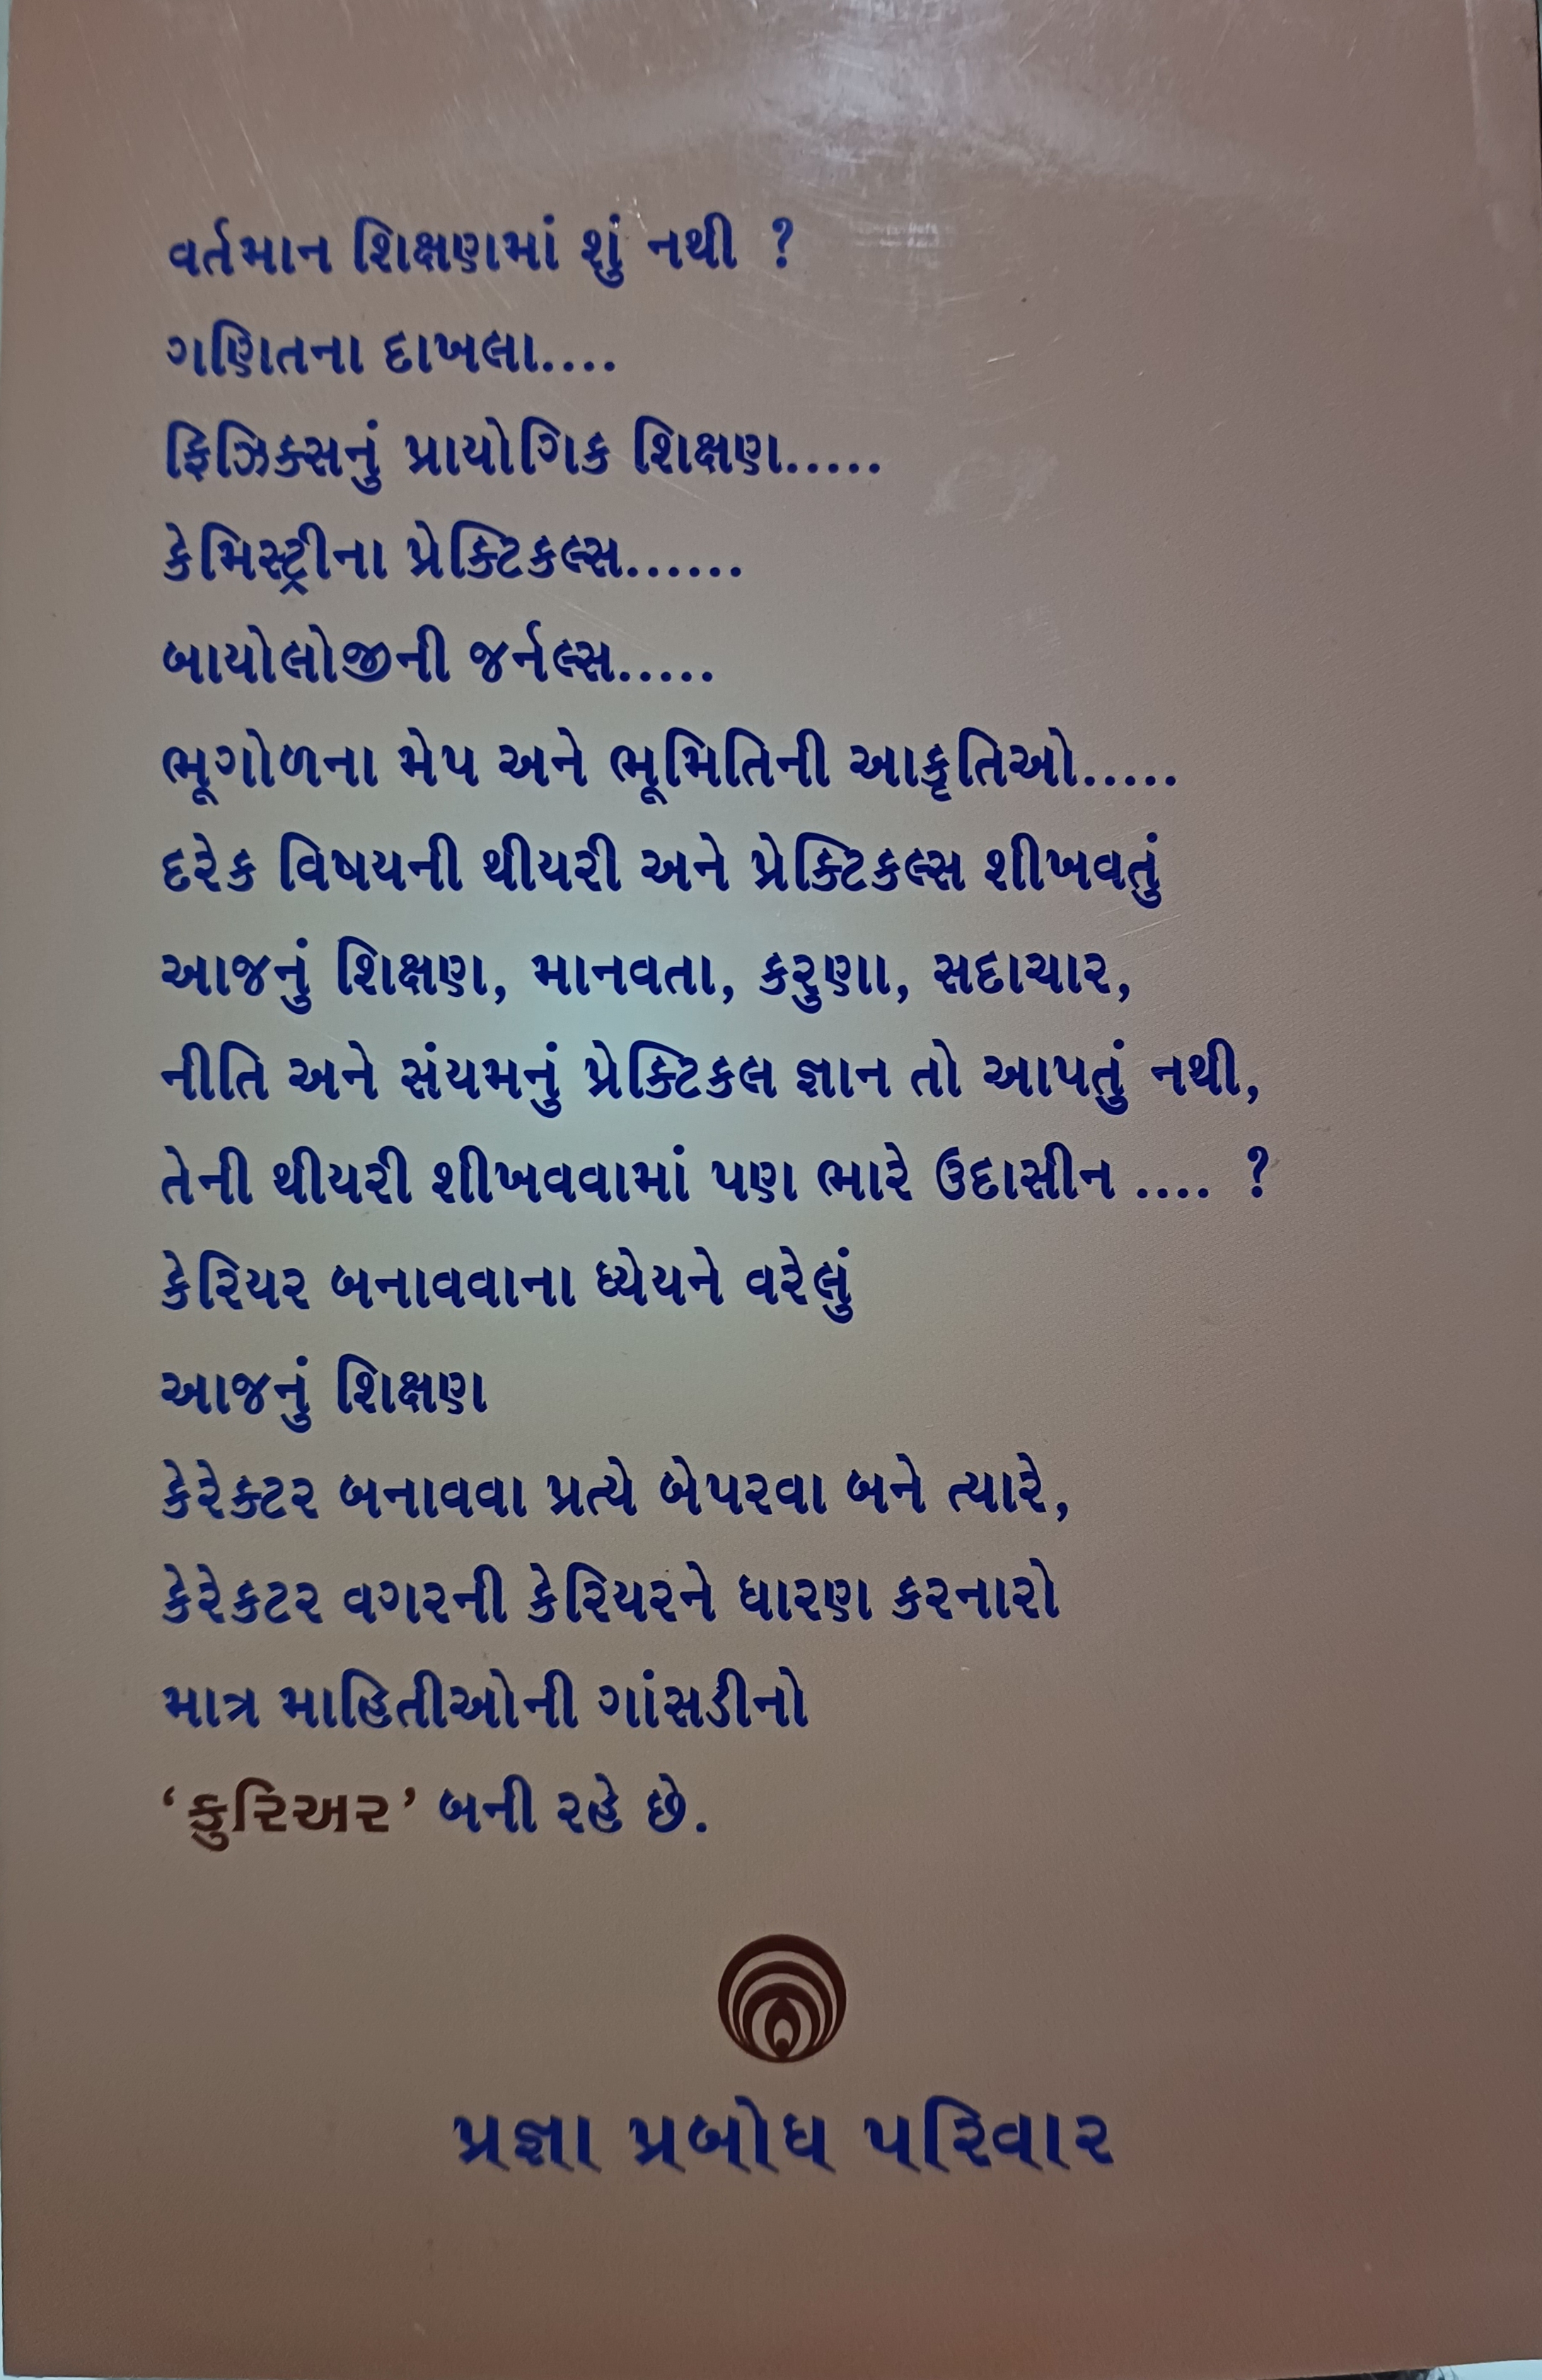 વર્તમાન શિક્ષણમાં શું નથી ?
ગણિતના દાખલા....
ફિઝિક્સનું પ્રાયોગિક શિક્ષણ.....
કેમિસ્ટ્રીના પ્રેક્ટિકલ્સ......
બાયોલોજીની જર્નલ્સ.....
ભૂગોળના મેપ અને ભૂમિતિની આકૃતિઓ.....
દરેક વિષયની થીયરી અને પ્રેક્ટિકલ્સ શીખવતું
આજનું શિક્ષણ, માનવતા, કરુણા, સદાચાર,
નીતિ અને સંયમનું પ્રેક્ટિકલ જ્ઞાન તો આપતું નથી,
તેની થીયરી શીખવવામાં પણ ભારે ઉદાસીન .... ?
કેરિયર બનાવવાના ધ્યેયને વરેલું
આજનું શિક્ષણ
કેરેક્ટર બનાવવા પ્રત્યે બેપરવા બને ત્યારે,
કેરેકટર વગરની કેરિયરને ધારણ કરનારો
માત્ર માહિતીઓની ગાંસડીનો
‘કુરિઅર’ બની રહે છે.
પ્રજ્ઞા પ્રબોધ પરિવાર